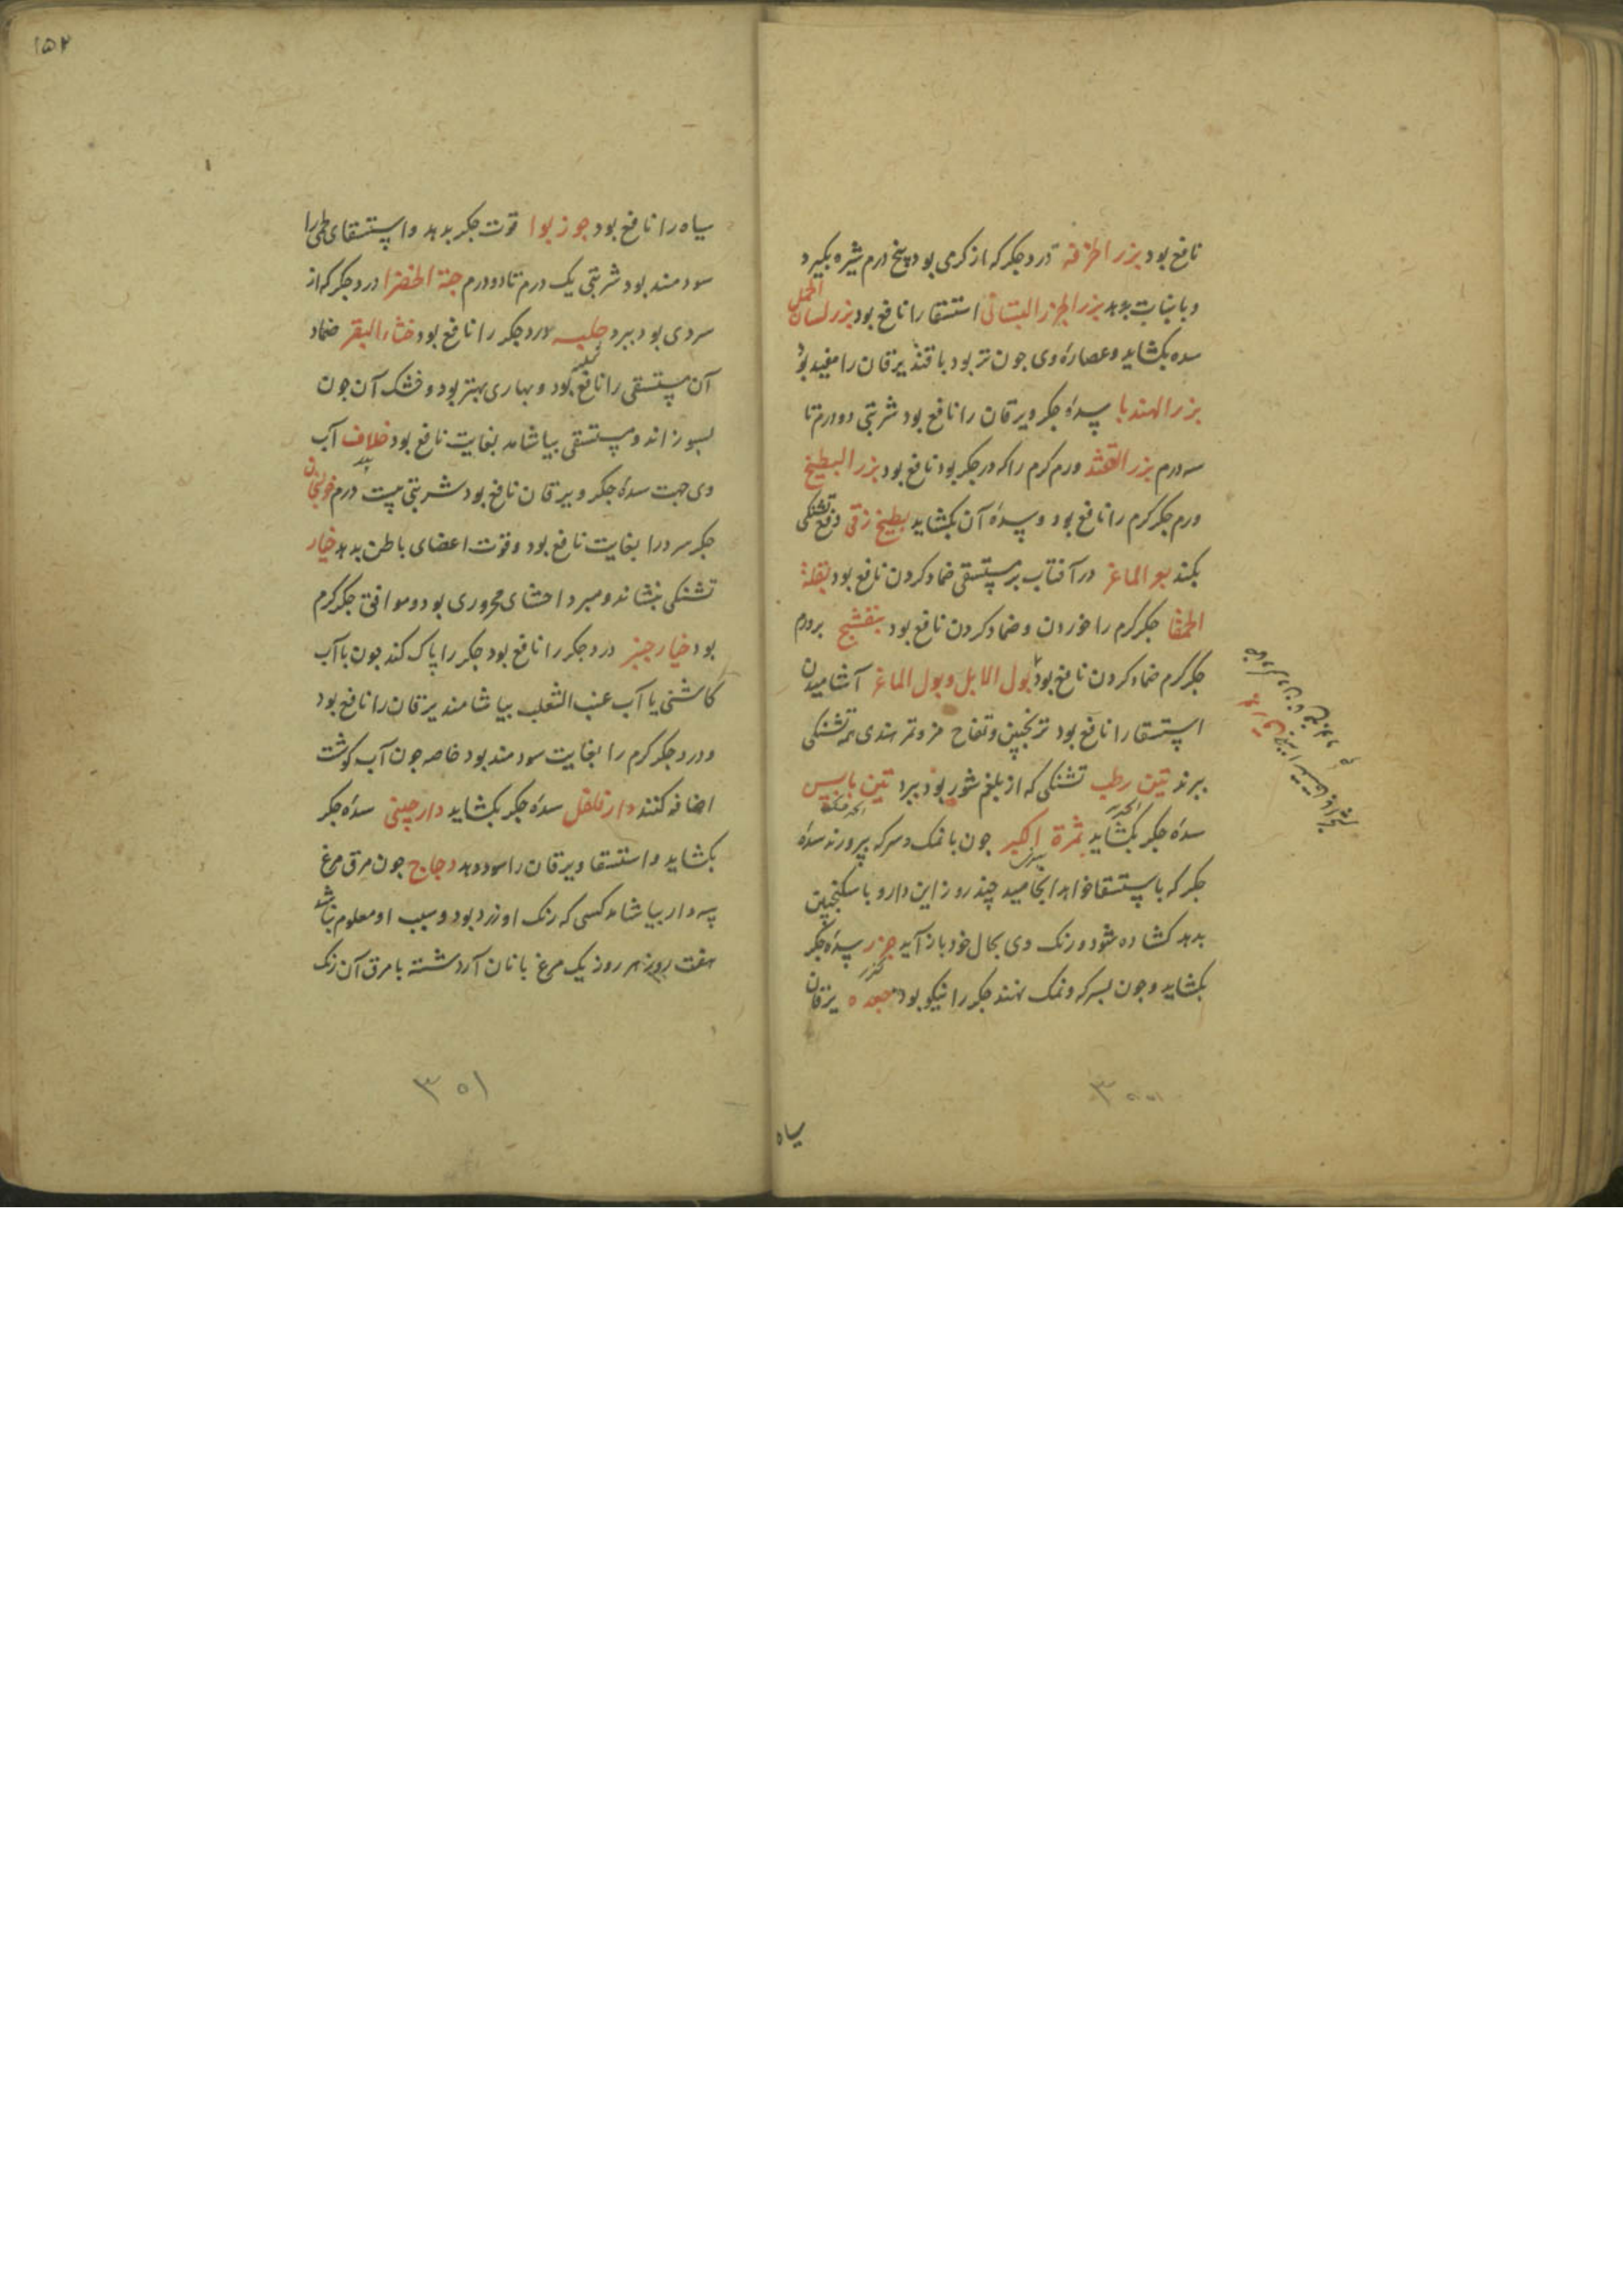 نافع بود بزر الخرفه درد جکر که از کرمی بود پنج درم شیره بکیرد
و با نبات بدهد بزر الجزر البستانی استسقا را نافع بود بزر لسان الحمل
سده بکشاید و عصارهٔ وی جون تر بود با قند یرقان را مفید بود
بزر الهندبا سدهٔ جکر و یرقان را نافع بود شربتی دو درم تا
سه درم بزر القثد ورم کرم را که در جکر بود نافع بود بزر البطیخ
ورم جکر کرم را نافع بود و سدهٔ آن بکشاید بطیخ زقی دفع تشنکی
بکند بعر الماعز در آفتاب بر مستسقی ضماد کردن نافع بود بقلة
الحمقا جکر کرم را خوردن و ضماد کردن نافع بود بنفشج بر ورم
جکر کرم ضماد کردن نافع بود بول الابل و بول الماعز آشامیدن
استسقا را نافع بود ترنجبین و تفاح مز و تمر هندی همه تشنکی
ببرند تین رطب تشنکی که از بلغم شور بود ببرد تین یابس
سدهٔ جکر بکشاید ثمرة الکبر جون با نمک و سرکه بپرورند سدهٔ
جکر که باستسقا خواهد انجامید چند روز این دارو با سکنجبین
بدهد کشاده شود و رنک وی بحال خود باز آید جزر سدهٔ جکر
بکشاید و جون بسرکه و نمک نهند جکر را نیکو بود جعده یرقان
سیاه
۱۵۲
سیاه را نافع بود جوز بوا قوت جکر بدهد و استسقای لحمی را
سودمند بود شربتی یک درم تا دو درم حبة الخضرا درد جکر که از
سردی بود ببرد حلبه درد جکر را نافع بود خثاء البقر ضماد
آن مستسقی را نافع بود و بهاری بهتر بود و خشک آن جون
بسوزانند و مستسقی بیاشامد بغایت نافع بود خلاف آب
وی جهت سدهٔ جکر و یرقان نافع بود شربتی بیست درم خولنجان
جکر سرد را بغایت نافع بود و قوت اعضای باطن بدهد خیار
تشنکی بنشاند و مبرد احشای محروری بود و موافق جکر کرم
بود خیار جنبر درد جکر را نافع بود جکر را پاک کند جون با آب
کاسنی یا آب عنب الثعلب بیاشامند یرقان را نافع بود
و درد جکر کرم را بغایت سودمند بود خاصه جون آب کوشت
اضافه کنند دار فلفل سدهٔ جکر بکشاید دارچینی سدهٔ جکر
بکشاید و استسقا و یرقان را سود دهد دجاج جون مرق مرغ
پیه دار بیاشامد کسی که رنک او زرد بود و سبب او معلوم نباشد
هفت روز هر روز یک مرغ با نان آرد شسته با مرق آن رنک
۳۰۱